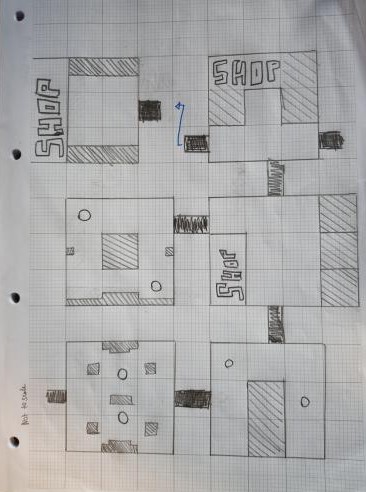 Not to scale
SHOP
SHOP
SHOP